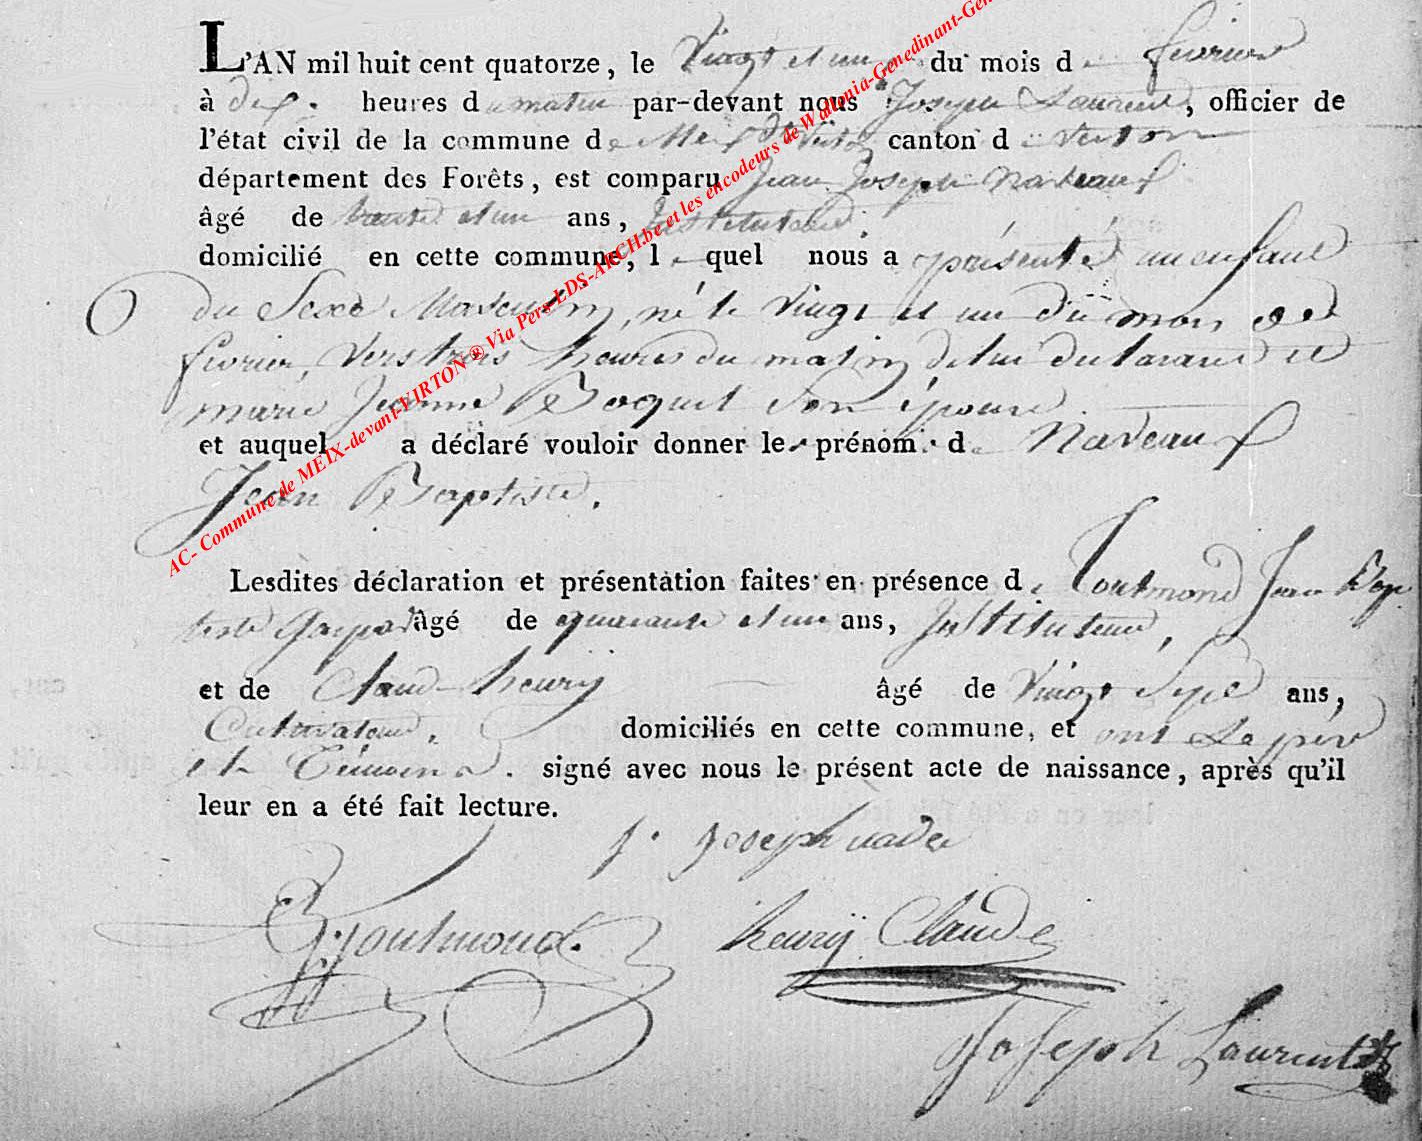 L'AN mil huit cent quatorze, le Vingt et un du mois de fevrier
à dix heures du matin par-devant nous Joseph Laurent, officier de
l'état civil de la commune de Meix dt Virton canton de virton
département des Forêts, est comparu Jean Joseph Naveaux
âgé de trente et un ans, Instituteur.
domicilié en cette commune, lequel nous a présenté un enfant
du Sexe Masculin, né le vingt et un du mois de
fevrier, vers trois heures du matin de lui declarant et
marie Jeanne Boquet Son épouse
et auquel a déclaré vouloir donner le prénom de Naveaux
Jean Baptiste.
Lesdites déclaration et présentation faites en présence de Toutmond Jean Bap
tiste Gaspard âgé de quarante et un ans, Instituteur,
et de Claud henry âgé de Vingt Sept ans,
Cultivateur, domiciliés en cette commune, et ont Le père
et te Témoins. signé avec nous le présent acte de naissance, après qu'il
leur en a été fait lecture.
j. joseph
henry Claude
Joseph Laurent
AC- Commune de MEIX-devant-VIRTON ® Via Pers LDS-ARCH.be et les encodeurs de Wallonia-Genedinant-Gen